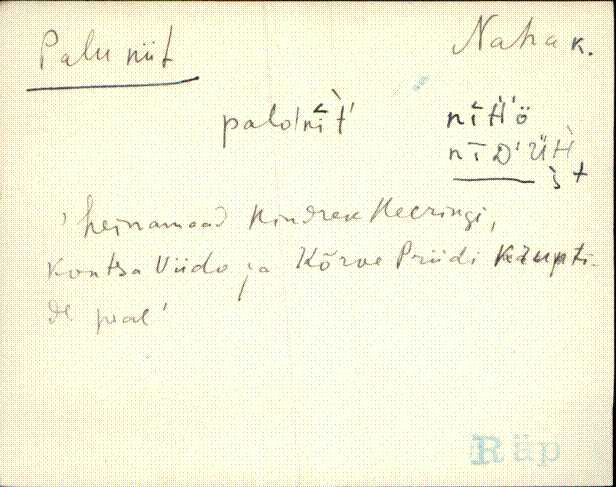 Palu niit
Naha k.
palo/nī̆t̀'
nīH'ö
nīD'ÜH̀
s +
'heinamaad Hindrek Heeringi,
Kontsa Viido ja Kõrve Priidi krupti-
de peal'
Räp